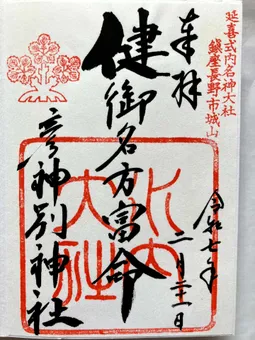 延喜式内名神大社
鎮座長野市城山
奉拝
健御名方富命
彦神別神社
令和七年
二月二十一日
水内大社